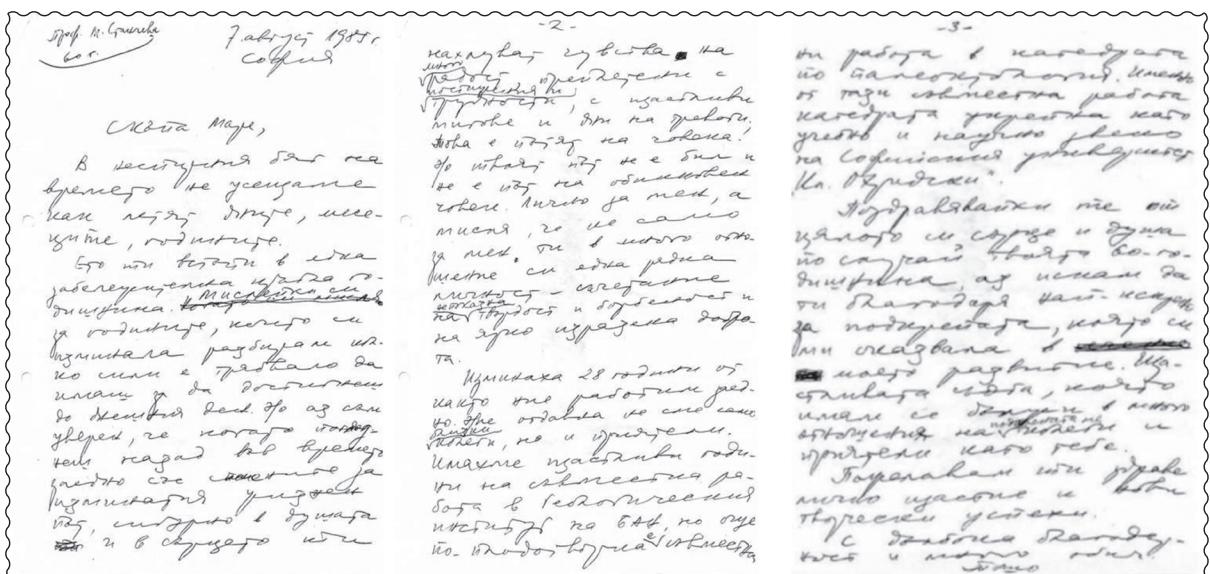 Проф. М. Станчева
60 г.
7 август 1985 г.
София
Скъпа Маре,
В неспирния бяг на
времето не усещаме
как летят дните, месе-
ците, годините.
Ето ти встъпи в една
забележителна кръгла го-
дишнина. Мислейки си
за годините, които си
изминала разбирам кол-
ко сили е трябвало да
имаш за да достигнеш
до днешния ден. Но аз съм
уверен, че когато поглед-
нем назад във времето
заедно със за
изминатия
път, сигурно в душата
и в сърцето ти
-2-
нахлуват чувства на
много
радост преплетени с
постижения и
трудности, с щастливи
мигове и дни на тревоги.
Това е пътят на човека.
Но твоят път не е бил и
не е път на обикновен
човек. Лично за мен, а
мисля, че не само
за мен, ти в много отно-
шение си една рядка
личност – съчетание
на твърдост и борбеност и
на ярко изразена добро-
та.
Изминаха 28 години от
както ние работим заед-
но. Ние отдавна не сме само
близки
колеги, но и приятели.
Имахме щастливи годи-
ни на съвместна ра-
бота в Геологическия
институт на БАН, но още
по-плодотворна е съвместна
-3-
ни работа в катедрата
по палеонтология. Именно
от тази съвместна работа
катедрата укрепна като
учебно и научно звено
на Софийския университет
"Кл. Охридски".
Поздравявайки те от
цялото си сърце и душа
по случай твоята 60-го-
дишнина, аз искам да
ти благодаря най-искрено
за подкрепата, която си
ми оказвала в
моето развитие. Ща-
стлива съдба, която
имам се в много
отношения на колеги и
приятели като тебе.
Пожелавам ти здраве
лично щастие и нови
творчески успехи.
С дълбока благодар-
ност и много обич:
Тошо